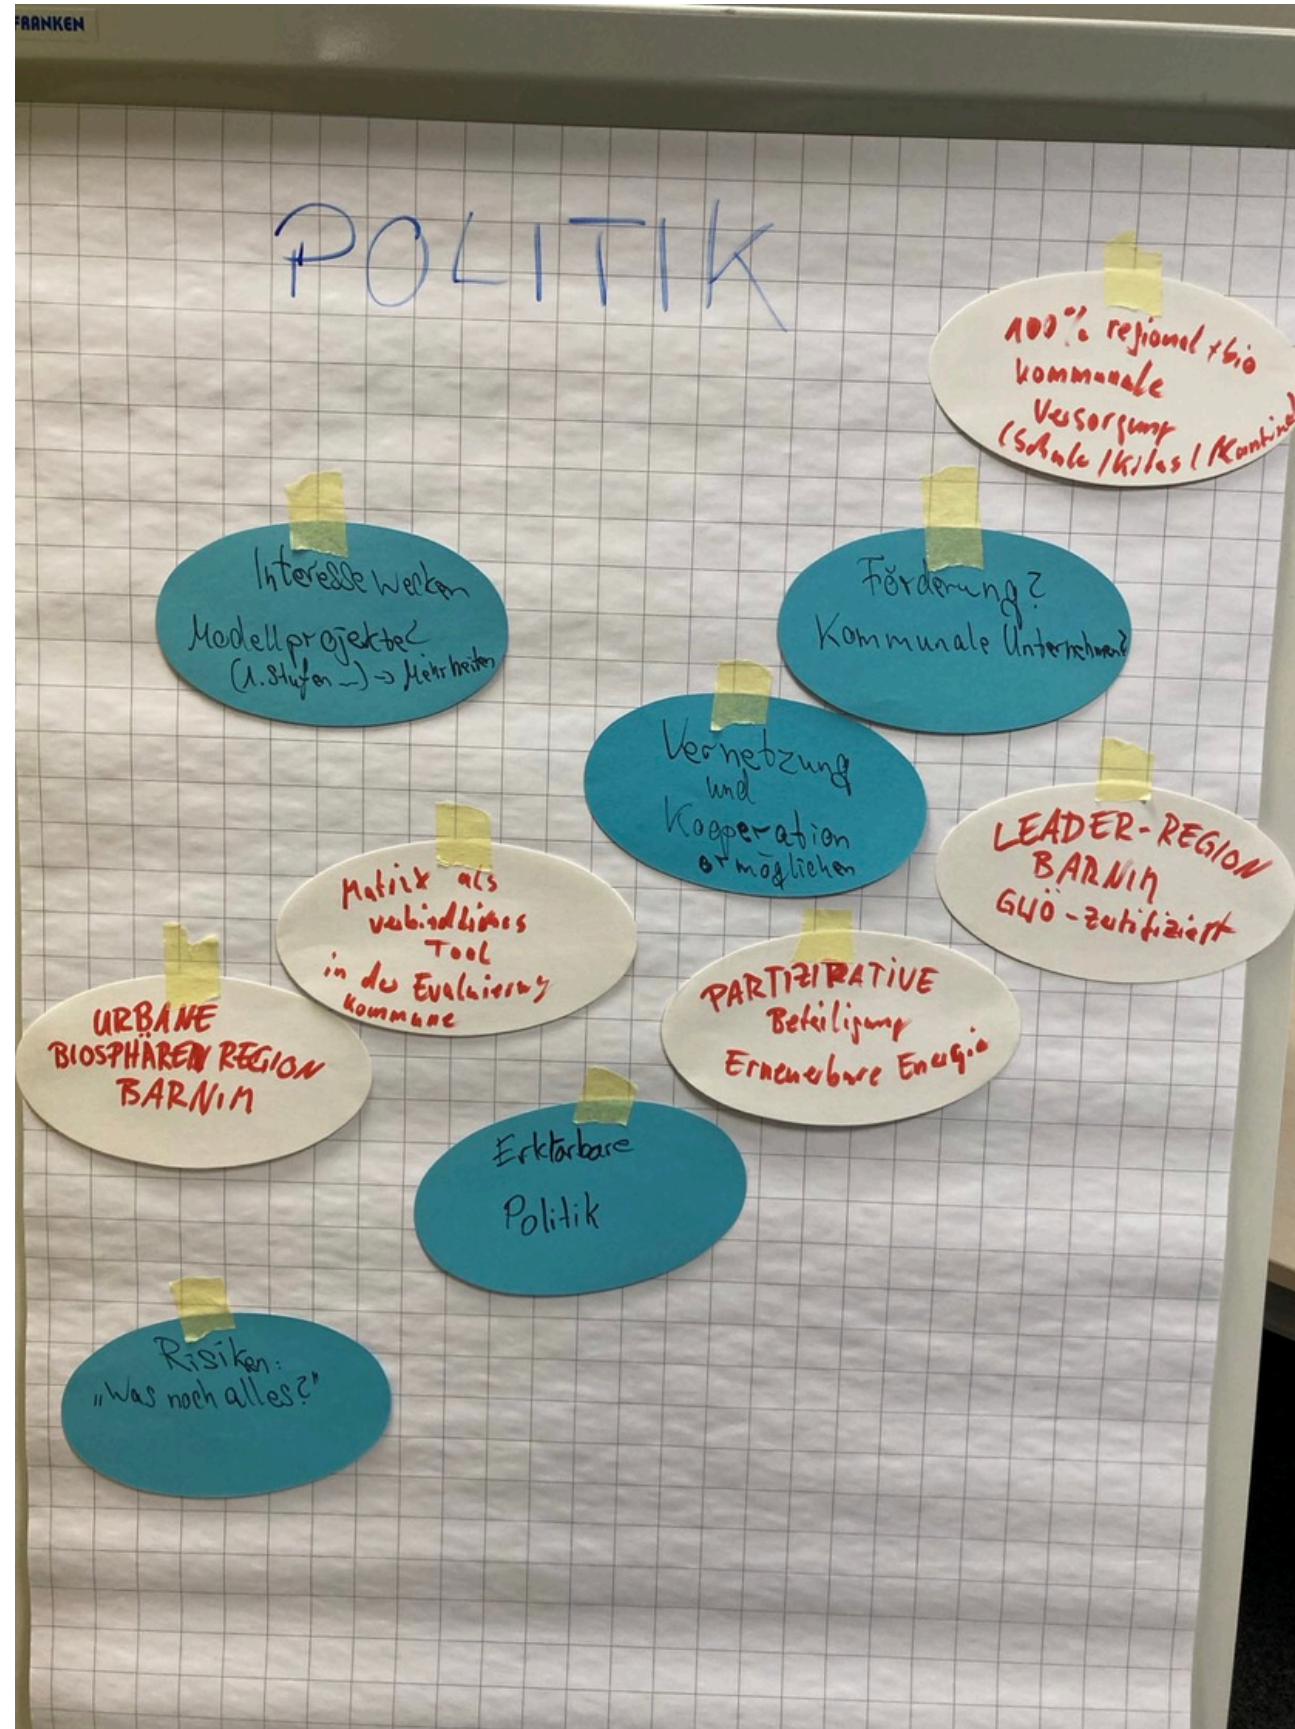 FRANKEN
POLITIK
100% regional + bio
kommunale
Versorgung
(Schule / Kitas / Kantine)
Interesse wecken
Modellprojekte?
(1. Stufen ...) → Mehrheiten
Förderung?
Kommunale Unternehmen?
Vernetzung
und
Kooperation
ermöglichen
LEADER-REGION
BARNIM
GWÖ-zertifiziert
Matrix als
verbindliches
Tool
in der Evaluierung
Kommune
PARTIZIPATIVE
Beteiligung
Erneuerbare Energie
URBANE
BIOSPHÄREN REGION
BARNIM
Erklärbare
Politik
Risiken:
„Was noch alles?"